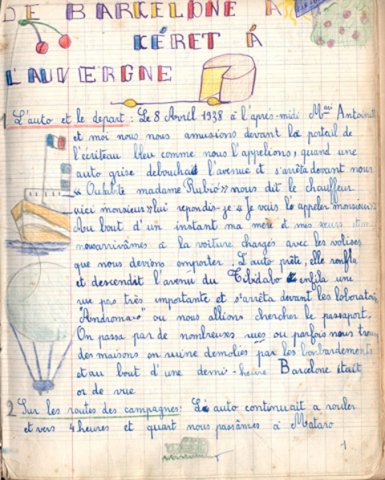 DE BARCELONE A
CÉRET Á
L'AUVERGNE
1 L'auto et le depart: Le 8 Avril 1938 à l'après-midi Marie Antoinette
et moi nous nous amusions devant le portail de
l'écriteau bleu comme nous l'appelions, quand une
auto grise déboucha l'avenue et s'arrêta devant nous
madame Rubió" nous dit le chauffeur
"ici monsieur" lui repondis-je "Je vais le appeler monsieur"
Au bout d'un instant ma mère et mes
nous arrivâmes à la voiture chargés avec les valises
que nous devions emporter. L'auto prête, elle ronfla
et descendit l'avenue du Tibidabo enfila une
rue pas très importante et s'arrêta devant les laboratoires
"Andromaco" ou nous allions chercher le passeport.
On passa par de nombreux rues ou parfois nous
des maisons en ruine demolies par les bombardements
et au bout d'une demi-heure Barcelone était
or de vue
2 Sur les routes des campagnes: L'auto continuait a rouler
et vers 4 heures et quart nous passâmes à Mataró
1